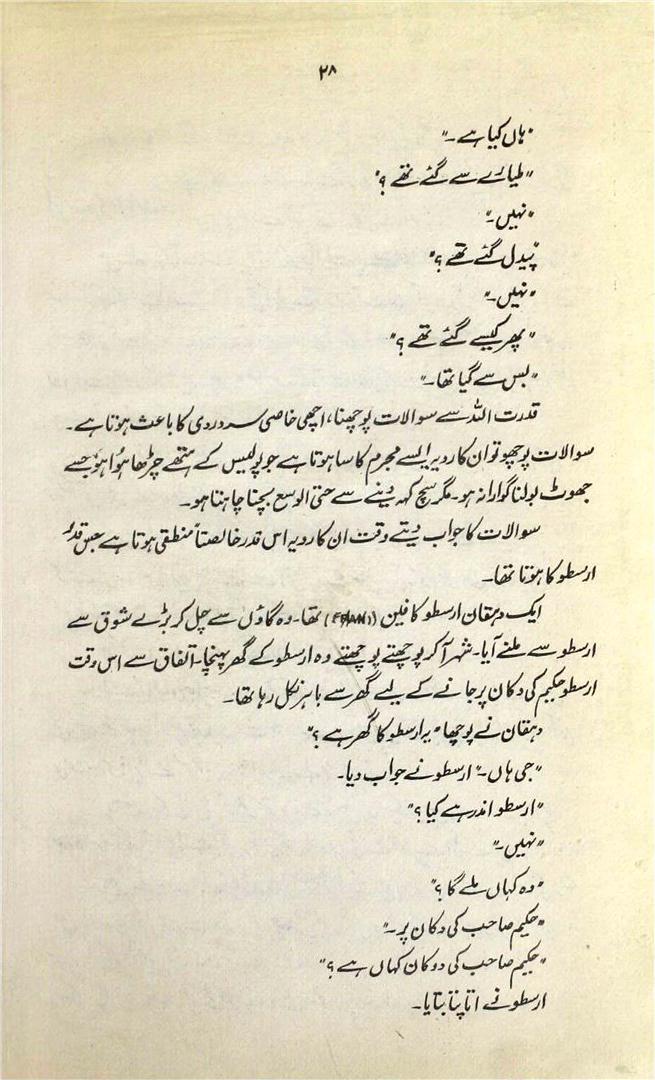 ۲۸
"ہاں کیا ہے۔"
"طیارے سے گئے تھے؟"
"نہیں۔"
"پیدل گئے تھے؟"
"نہیں۔"
"پھر کیسے گئے تھے؟"
"بس سے گیا تھا۔"
قدرت اللہ سے سوالات پوچھنا، اچھی خاصی سر دردی کا باعث ہوتا ہے۔
سوالات پوچھو تو ان کا رویہ ایسے مجرم کا سا ہوتا ہے جو پولیس کے ہتھے چڑھا ہُوا ہو، جسے
جھوٹ بولنا گوارا نہ ہو۔ مگر سچ کہہ دینے سے حتی الوسع بچنا چاہتا ہو۔
سوالات کا جواب دیتے وقت ان کا رویہ اس قدر خالصتاً منطقی ہوتا ہے جس قدر
ارسطو کا ہوتا تھا۔
ایک دہقان ارسطو کا فین () تھا۔ وہ گاؤں سے چل کر بڑے شوق سے
ارسطو سے ملنے آیا۔ شہر آ کر پوچھتے پوچھتے وہ ارسطو کے گھر پہنچا۔ اتفاق سے اس وقت
ارسطو حکیم کی دکان پر جانے کے لیے گھر سے باہر نکل رہا تھا۔
دہقان نے پوچھا "یہ ارسطو کا گھر ہے؟"
"جی ہاں۔" ارسطو نے جواب دیا۔
"ارسطو اندر ہے کیا؟"
"نہیں۔"
"وہ کہاں ملے گا؟"
"حکیم صاحب کی دکان پر۔"
"حکیم صاحب کی دوکان کہاں ہے؟"
ارسطو نے اتا پتا بتایا۔